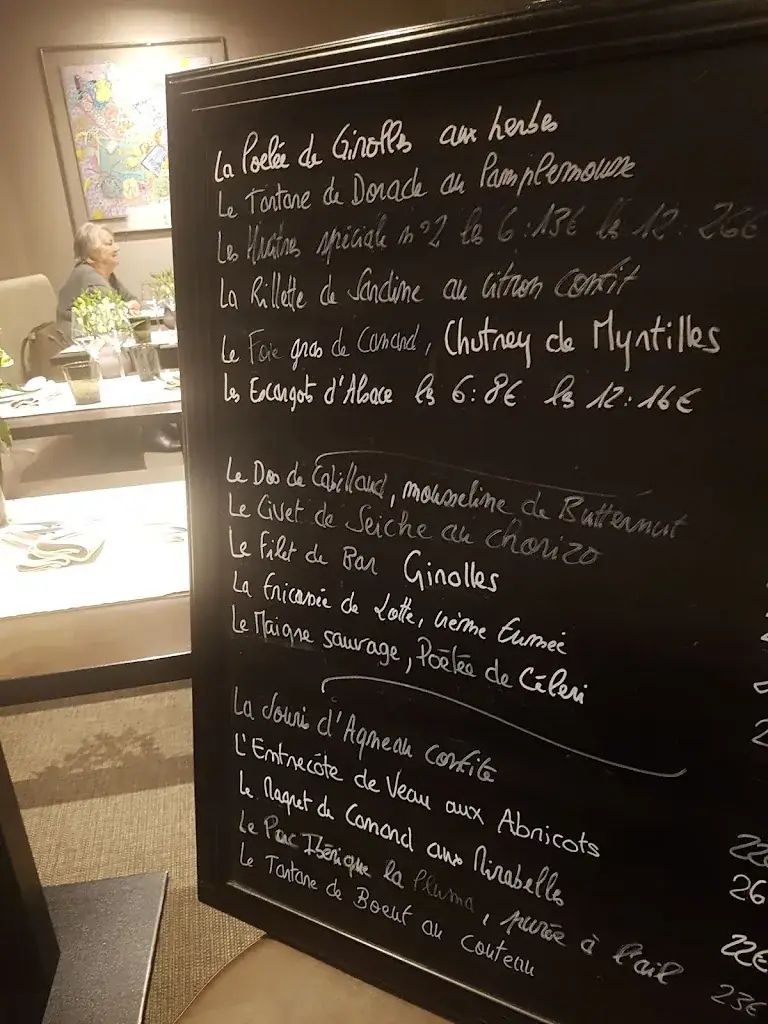 La Poelée de Girolles aux herbes
Le Tartare de Dorade au Pamplemousse
Les Huîtres spéciale n°2 les 6 : 13€ les 12 : 26€
La Rillette de Sardine au citron confit
Le Foie gras de Canard, Chutney de Myrtilles
Les Escargots d'Alsace les 6 : 8€ les 12 : 16€
Le Dos de Cabillaud, mousseline de Butternut
Le Civet de Seiche au chorizo
Le Filet de Bar Girolles
La Fricassée de Lotte, crème Fumée
Le Maigre sauvage, Poêlée de Céleri
La Souris d'Agneau confite
L'Entrecôte de Veau aux Abricots
Le Magret de Canard aux Mirabelles 22€
Le Porc Ibérique la Pluma, purée à l'ail 22€
Le Tartare de Boeuf au couteau 23€